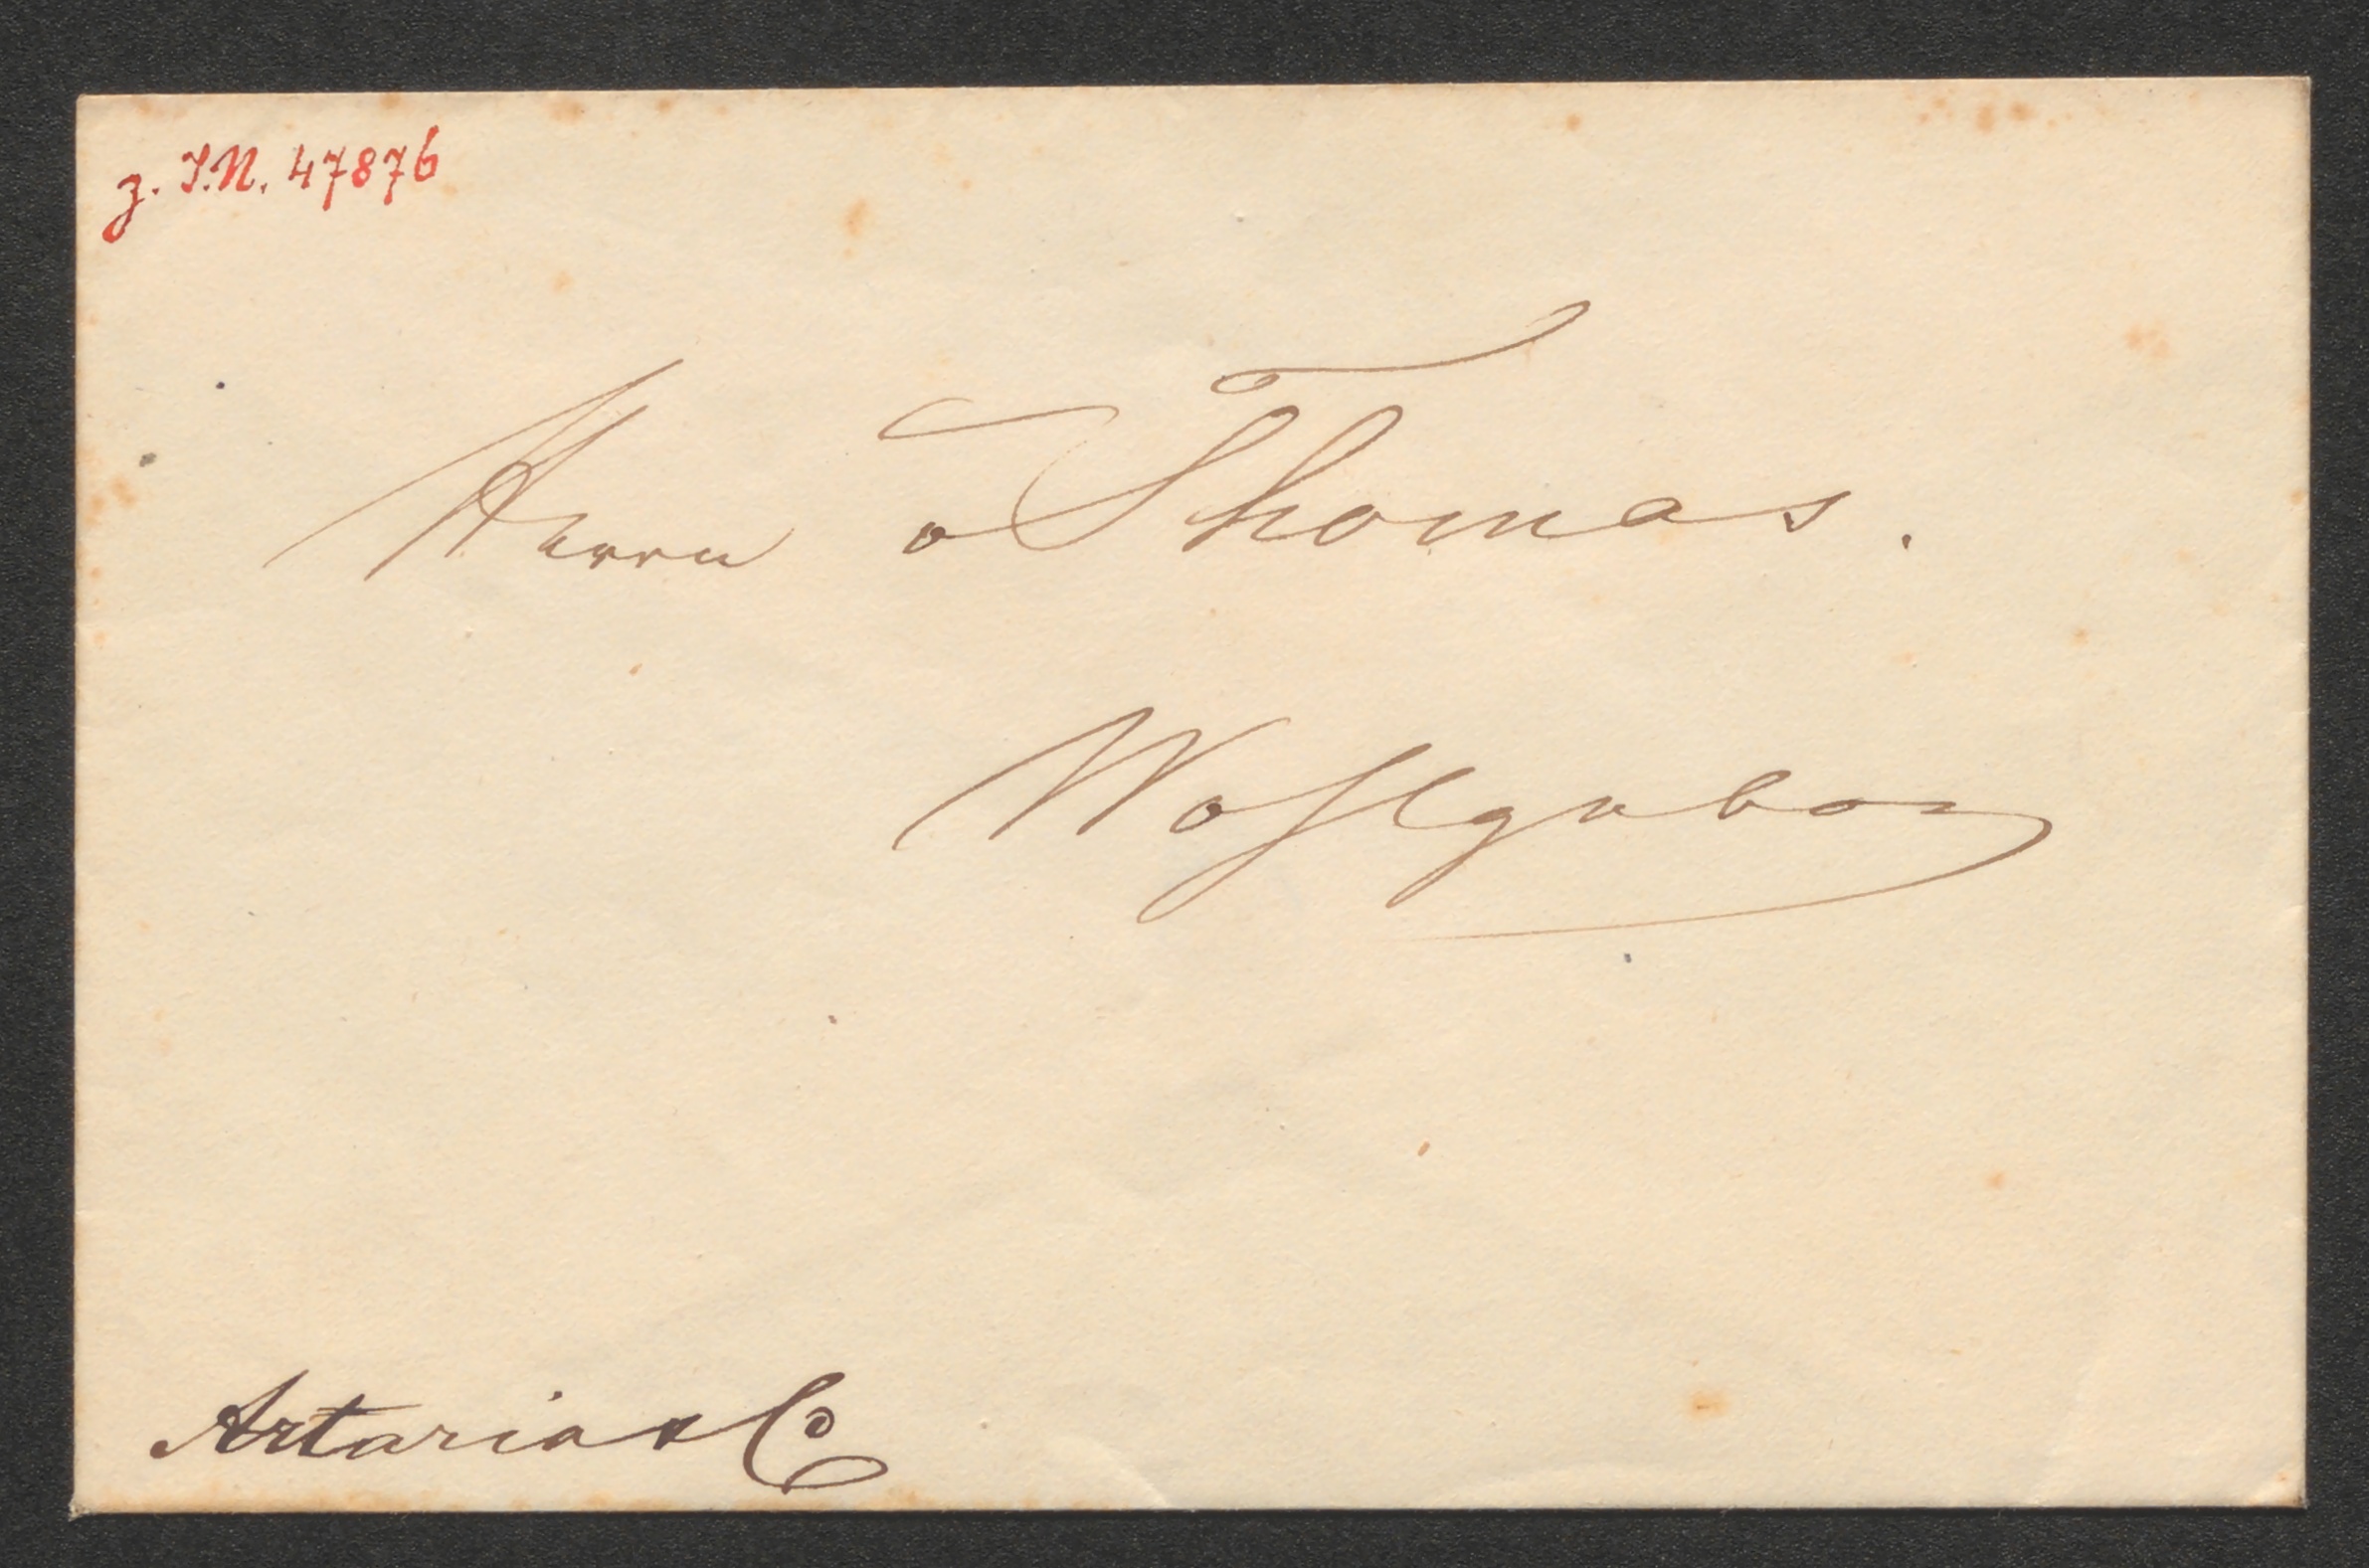 z. I.N. 47876
Herrn Thomas.
Wohlgebor
Artaria & Co